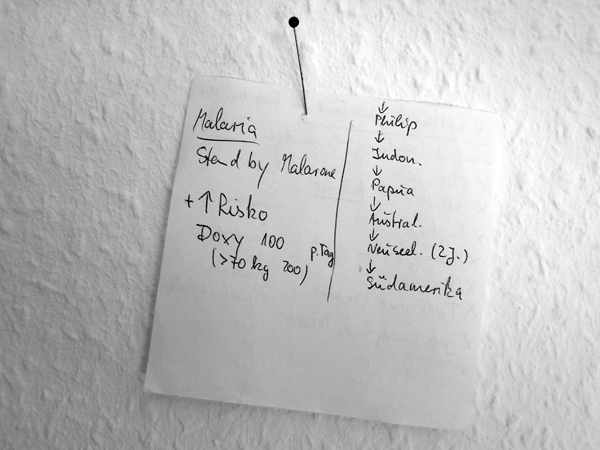 Malaria
Stand by Malarone
+ ↑ Risiko
Doxy 100 p.Tag
(>70 kg 200)
↓
Philip
↓
Indon.
↓
Papua
↓
Austral.
↓
Neuseel. (2J.)
↓
Südamerika